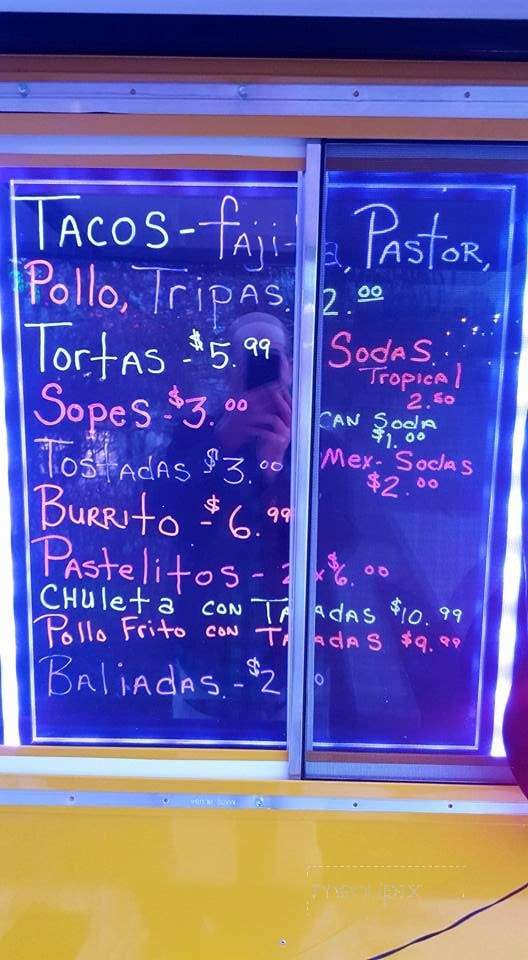 TACOS - fAji a, PAStOR,
Pollo, TRiPAS. 2.00
TortAS - $5.99
SodAS.
TropicAl
2.50
SopeS - $3.00
CAN SodA
$1.00
TOStADAS $3.00
Mex- SodaS
$2.00
BURRito - $6.99
PAStelitoS - 2 x $6.00
CHUletA CON TA ADAS $10.99
Pollo FRito CON TA ADAS $9.99
BAliADAS. - $2 0
MADE IN USA
menupix